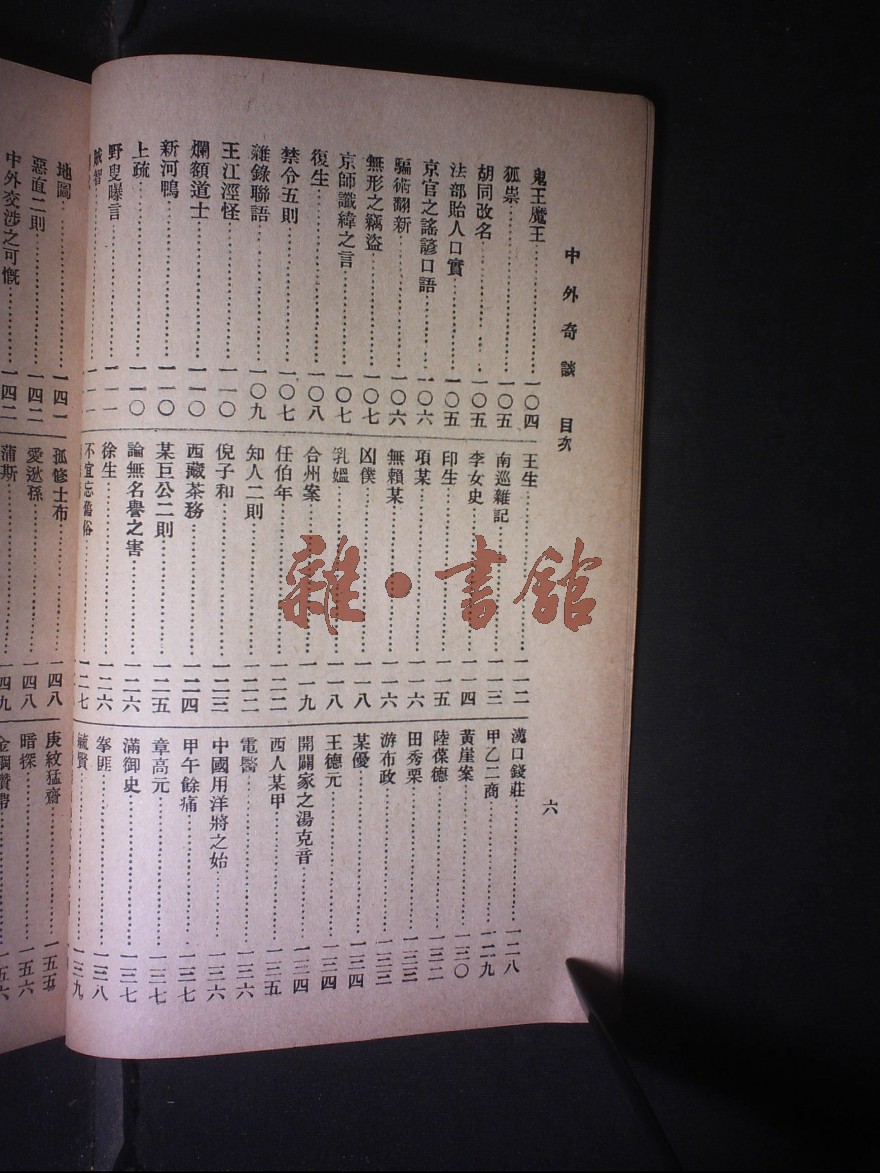 中外奇談 目次 六
鬼王魔王 一〇四
狐祟 一〇五
胡同改名 一〇五
法部貽人口實 一〇五
京官之謠諺口語 一〇六
騙術翻新 一〇六
無形之竊盜 一〇七
京師讖緯之言 一〇七
復生 一〇八
禁令五則 一〇七
雜錄聯語 一〇九
王江涇怪 一一〇
爛額道士 一一〇
新河鴨 一一〇
上疏 一一〇
野叟曝言 一一一
賊智
王生 一一二
南巡雜記 一一三
李女史 一一四
印生 一一五
項某 一一六
無賴某 一一六
凶僕 一一八
乳媼 一一八
合州案 一一九
任伯年 一二二
知人二則 一二二
倪子和 一二三
西藏茶務 一二四
某巨公二則 一二五
論無名譽之害 一二六
徐生 一二六
不宜忘舊俗 一二七
漢口錢莊 一二八
甲乙二商 一二九
黃崖案 一三〇
陸葆德 一三二
田秀栗 一三三
游布政 一三三
某優 一三四
王德元 一三四
開闢家之湯克音 一三四
西人某甲 一三五
電醫 一三六
中國用洋將之始 一三六
甲午餘痛 一三七
章高元 一三七
滿御史 一三七
拳匪 一三八
毓賢 一三九
地圖 一四一
惡直二則 一四二
中外交涉之可慨 一四二
孤修士布 一四八
愛逖孫 一四八
蒲斯 一四九
庚紋猛齋 一五五
暗探 一五六
金鋼鑽帶 一五六
雜·書館